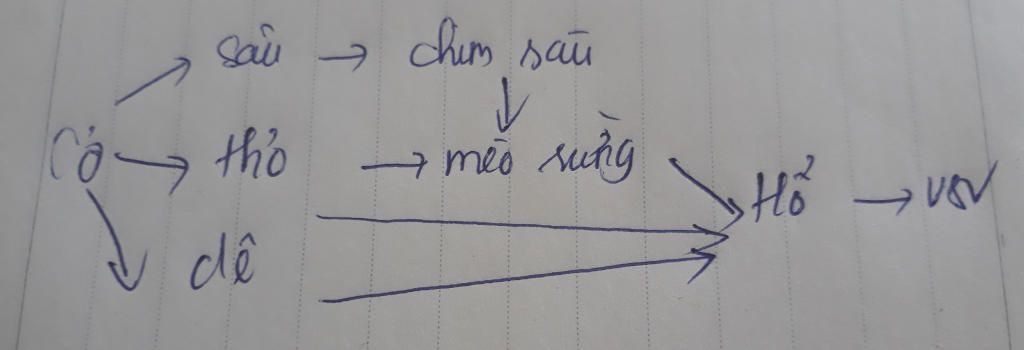 sâu → chim sâu
Cỏ → thỏ → mèo rừng
Hổ → VSV
dê